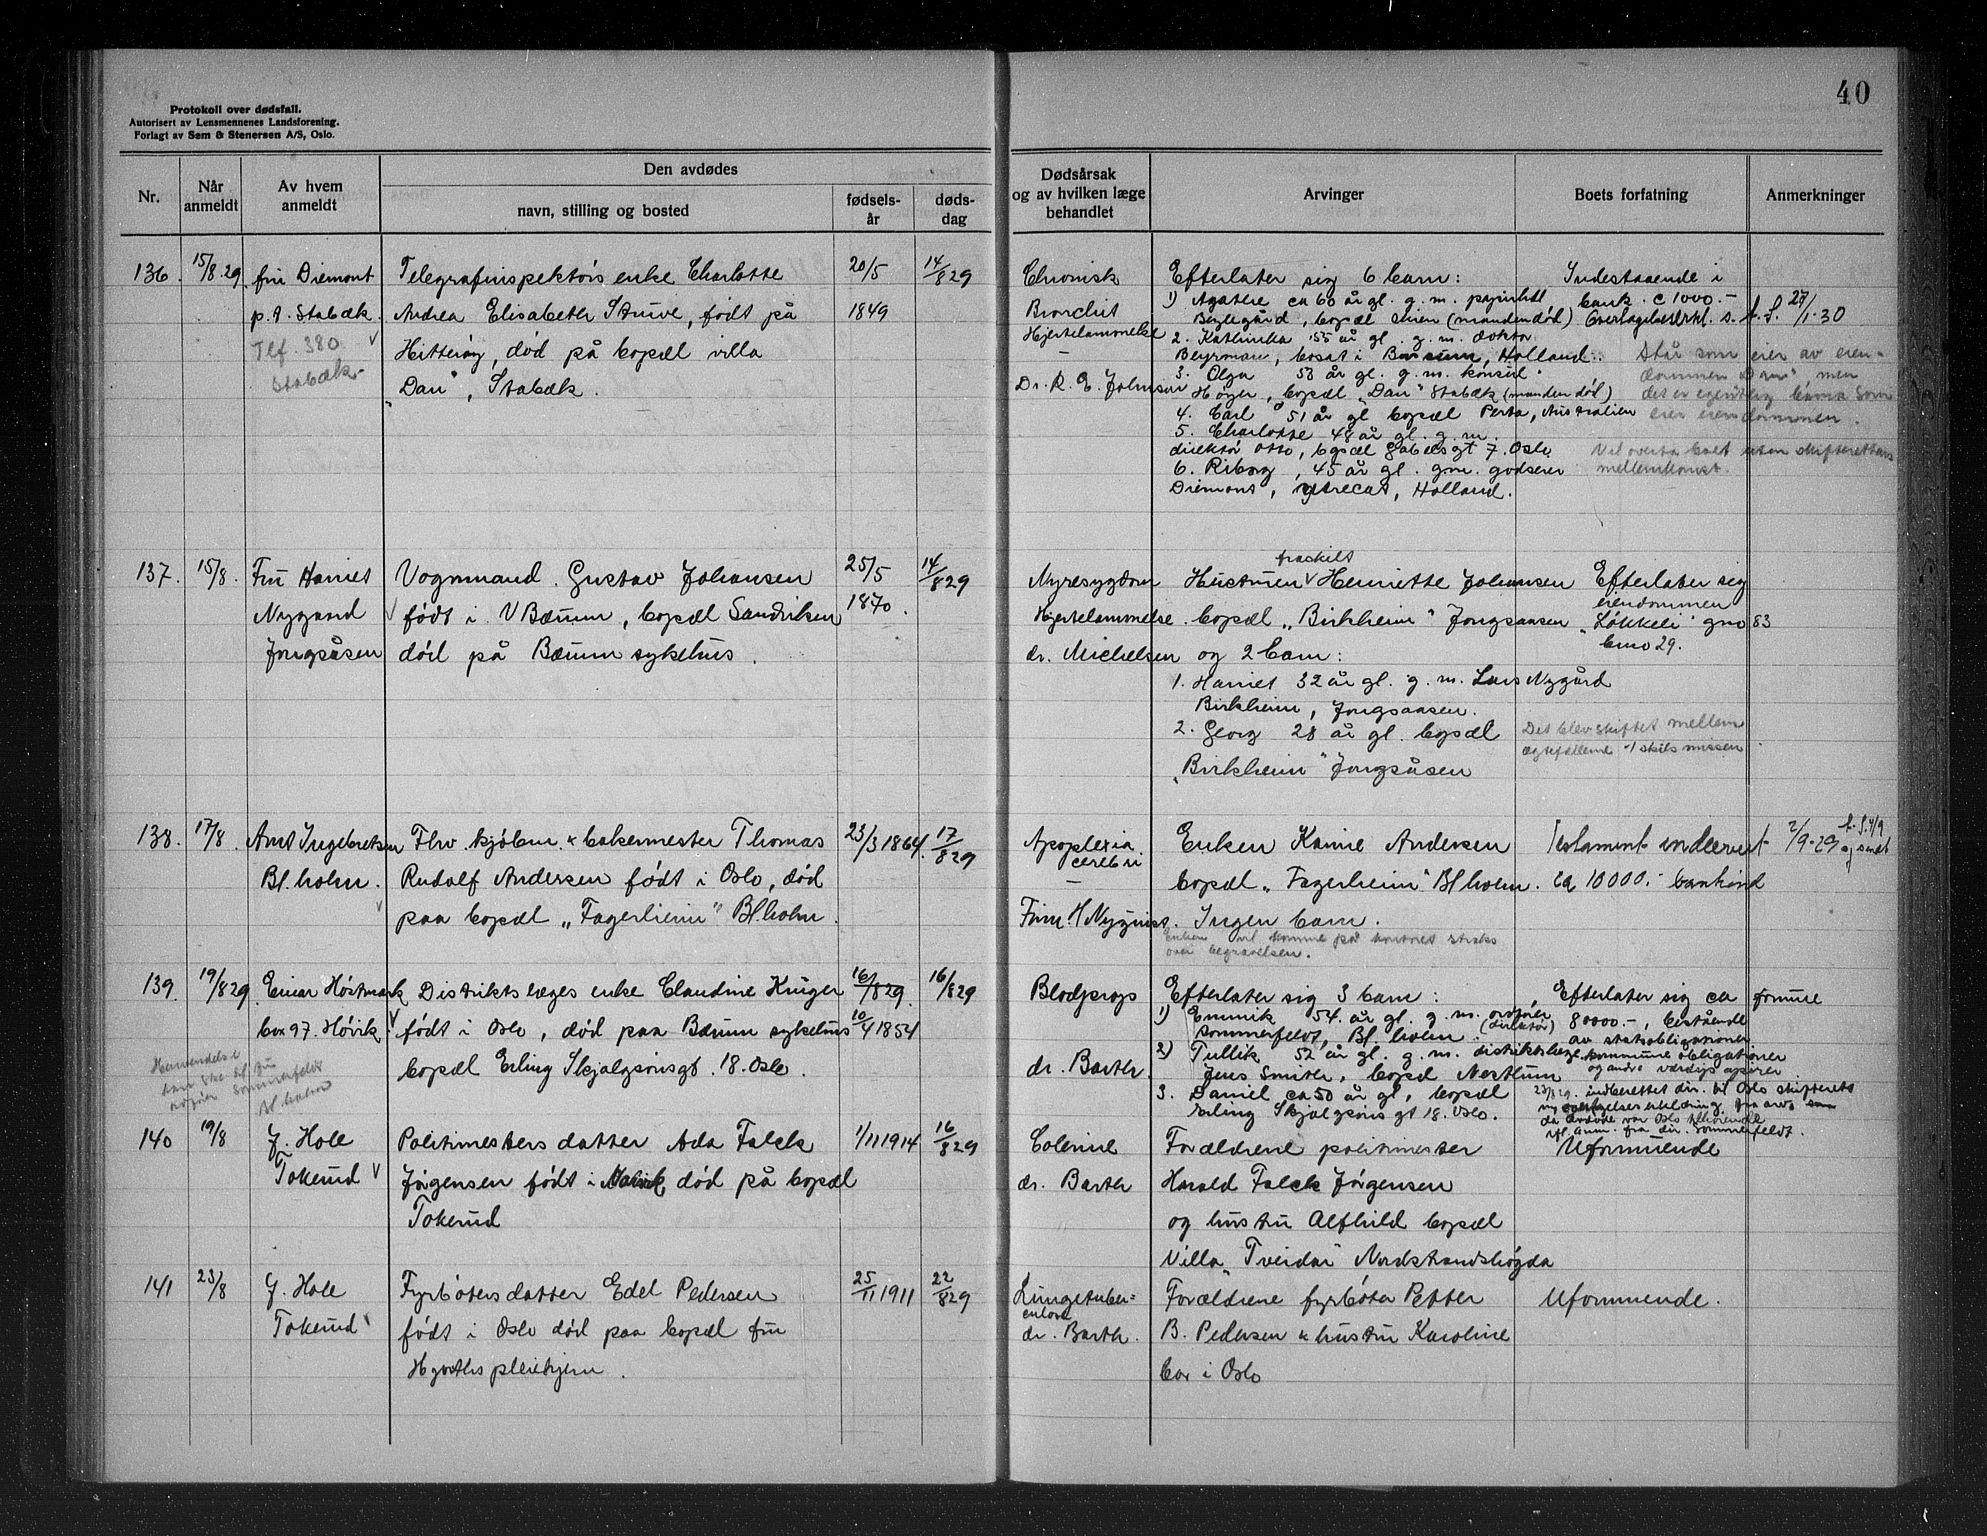 40
Protokoll over dødsfall.
Autorisert av Lensmennenes Landsforening.
Forlagt av Sem & Stenersen A/S, Oslo.
Nr.
Når anmeldt
Av hvem anmeldt
Den avdødes
navn, stilling og bosted
fødsels-år
døds-dag
Dødsårsak og av hvilken læge behandlet
Arvinger
Boets forfatning
Anmerkninger
136.
15/8.29
fru Diemont
p.t. Stabæk.
Tlf. 380
Stabæk.
Telegrafinspektørs enke Charlotte
Andrea Elisabeth Struve, født på
Hitterøy, død på bopæl villa
"Dan", Stabæk.
20/5
1849
14/8 29
Chronisk
Bronchit
Hjertelammelse
Dr. R. E. Johnsen
Efterlater sig 6 barn:
1) Agathe ca 60 år gl. g. m.
bopæl (manden død)
2. Kathinka 55 år gl. g. m. doktor
Bergman, bosat i Bussum, Holland.
3. Olga 53 år gl. g. m. konsul
Høyer, bopæl "Dan" Stabæk (manden død)
4. Carl 51 år gl bopæl Perta, Australien
5. Charlotte 48 år gl. g. m.
direktør Otto, bopæl Gabelsgt 7. Oslo
6. Riborg, 45 år gl. gm. godseier
Diemont, Holland.
Indestaaende i
bank. c 1000.-
27/1-30
Står som eier av eien-
dommen "Dan" men
det er egentlig barna som
eier eiendommen.
Vil overta boet uten skifterettens
mellemkomst.
137.
15/8.
Fru Harriet
Nygaard
Jongsåsen
Vognmand Gustav Johansen
født i V Bærum, bopæl Sandviken
død på Bærum sykehus.
25/5
1870.
14/8 29
Nyresygdom
Hjertelammelse.
dr. Michelsen
fraskilt
Hustruen Henriette Johansen
bopæl "Birkheim" Jongsaasen
og 2 barn:
1. Harriet 32 år gl. g. m. Lars Nygård
Birkheim, Jongsaasen.
2. Georg 28 år gl. bopæl
"Birkheim" Jongsåsen
Efterlater sig
eiendommen
"Løkkeli" gno 83
bno 29.
Det blev skiftet mellem
egtefællerne v/ skilsmissen
138.
17/8.
Arnt Ingebretsen
Bl. holm.
Fhv. kjøbm. & bakermester Thomas
Rudolf Andersen født i Oslo, død
paa bopæl "Fagerheim" Bl. holm.
23/3 1864.
17/8 29
Apoplexia
cerebri
Frim. H Nyquist.
Enken Karine Andersen
bopæl "Fagerheim" Bl holm.
Ingen barn.
Enken vil komme på kontoret straks
over begravelsen.
Testament indlevert
ca 10000.- bankind
2/9-29
139.
19/8 29
Einar Høstmark
box 97. Høvik.
Henvendelse
kan ske til fru
Sommerfeldt
Bl holm
Distriktslæges enke Claudine Krüger
født i Oslo, død paa Bærum sykehus
bopæl Erling Skjalgsønsgt. 18. Oslo.
16/8 29.
10/4 1854
16/8 29
Blodprop
dr. Barth.
Efterlater sig 3 barn:
1) Emmik 54. år gl. g. m.
(direktør)
Sommerfeldt, Bl. holm.
2) Tullik 52 år gl. g. m. distriktslæge
Jens Smith, bopæl Nestun
3. Daniel ca 50 år gl, bopæl
Erling Skjalgsøns gt 18. Oslo.
Efterlater sig ca formue
80000.-, bestående
av statsobligationer
kommune obligationer
og andre værdipapirer.
23/8 29. indberettet dir. til Oslo skifterett
da avdøde var Oslo tilhørende
iflg. anm. fra dir. Sommerfeldt.
140
19/8
J. Hole
Tokerud
Politimesters datter Ada Falck
Jørgensen født i Narvik død på bopæl
Tokerud
1/11 1914
16/8 29
dr. Barth
Forældrene politimester
Harald Falck Jørgensen
og hustru Alfhild bopæl
Villa "Tveidar" Nordstrandshøgda
Uformuende
141
23/8
J. Hole
Tokerud
Fyrbøters datter Edel Pedersen
født i Oslo død paa bopæl fru
pleiehjem.
25/11 1911
22/8 29
Lungetuber=
culose
dr. Barth.
Forældrene fyrbøter Petter
B. Pedersen & hustru Karoline
bor i Oslo
Uformuende.